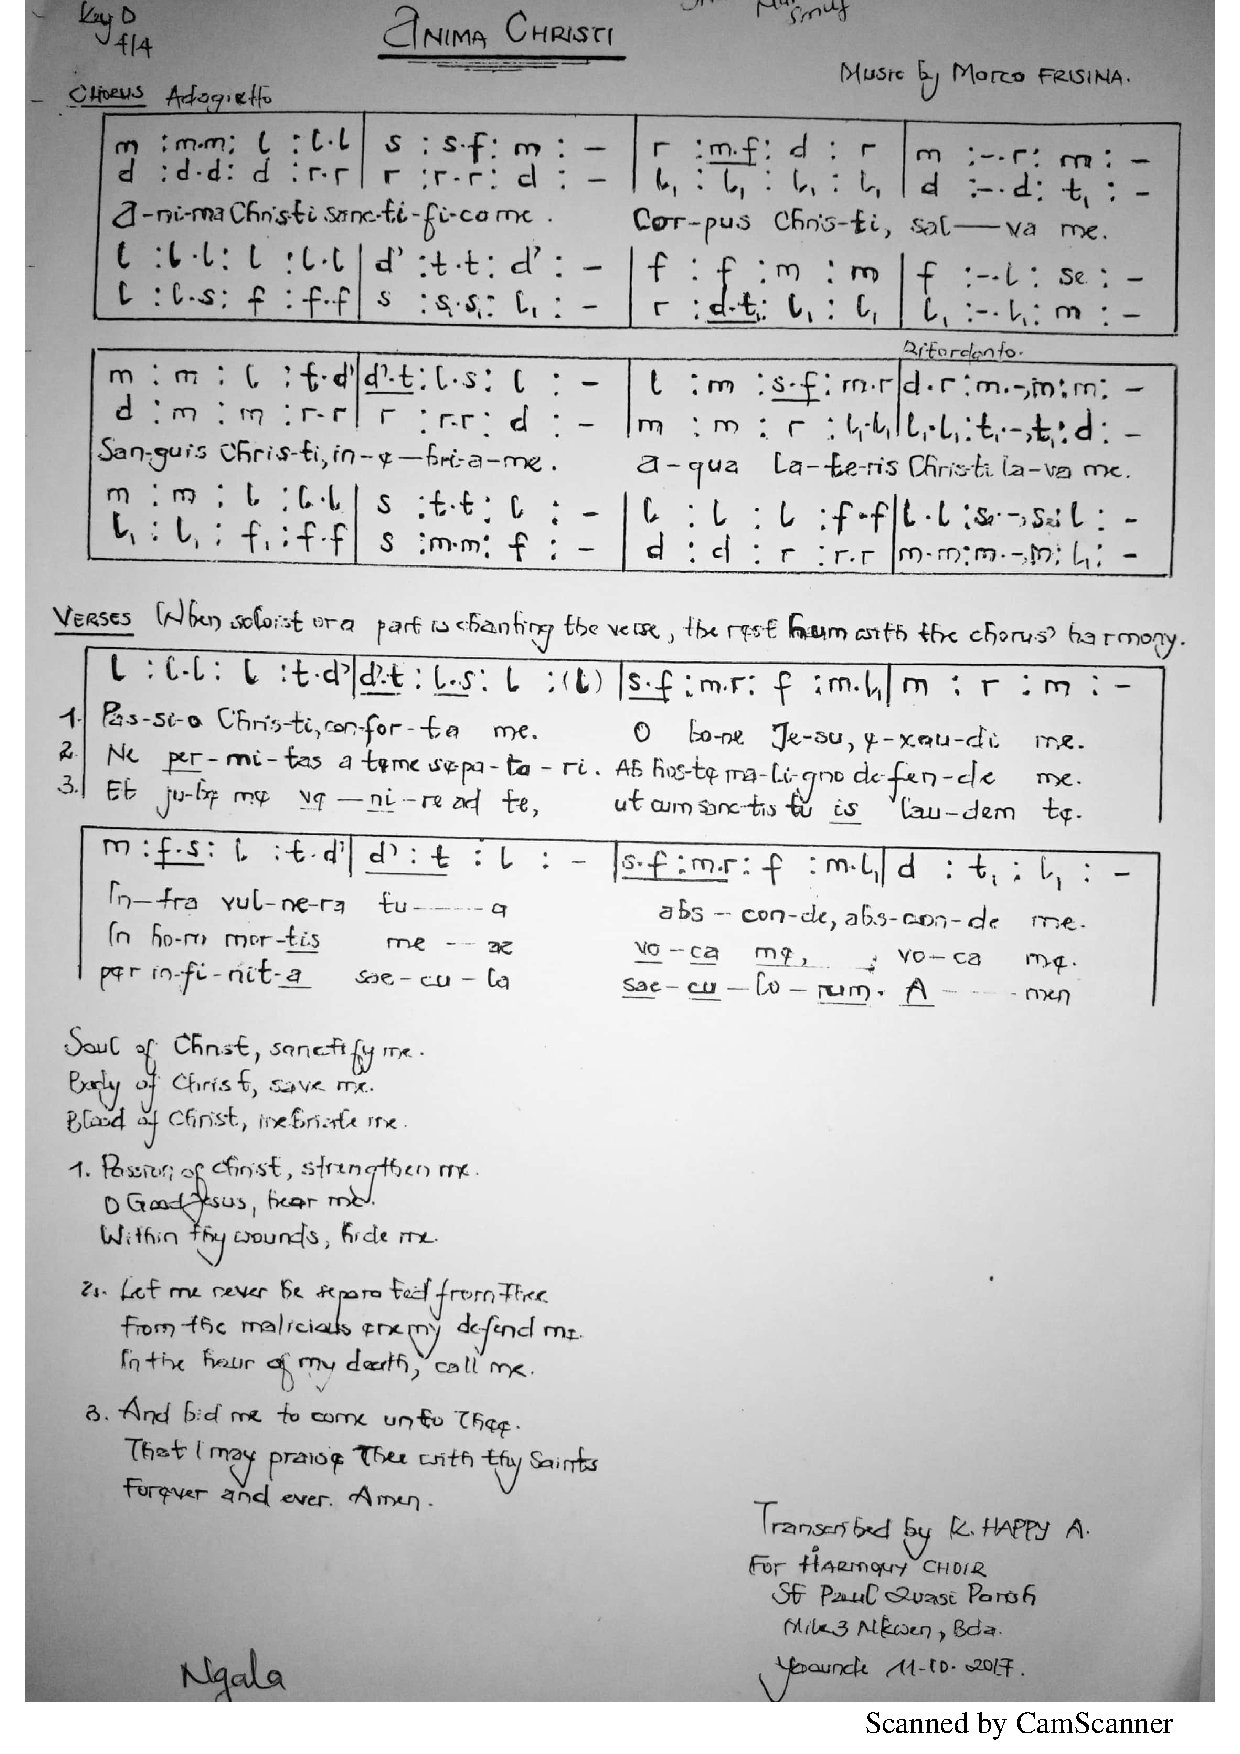 Key D
4/4
ANIMA CHRISTI
Music by Marco FRISINA.
CHORUS Adagietto
m : m.m : l : l.l | s : s.f : m : - | r : m.f : d : r | m : -.r : m : -
d : d.d : d : r.r | r : r.r : d : - | l₁ : l₁ : l₁ : l₁ | d : -.d : t₁ : -
A-ni-ma Chris-ti sanc-ti-fi-ca me. Cor-pus Chris-ti, sal—va me.
l : l.l : l : l.l | d' : t.t : d' : - | f : f : m : m | f : -.l : se : -
l : l.s : f : f.f | s : s₁.s₁ : l₁ : - | r : d.t₁ : l₁ : l₁ | l₁ : -.l₁ : m : -
Ritardanto.
m : m : l : t.d' | d'.t : l.s : l : - | l : m : s.f : m.r | d.r : m.-,m : m : -
d : m : m : r.r | r : r.r : d : - | m : m : r : l₁.l₁ | l₁.l₁ : t₁.-,t₁ : d : -
San-guis Chris-ti, in-e-bri-a-me. a-qua La-te-ris Christi la-va me.
m : m : l : l.l | s : t.t : l : - | l : l : l : f.f | l.l : se.-,se : l : -
l₁ : l₁ : f₁ : f.f | s : m.m : f : - | d : d : r : r.r | m.m : m.-,m : l₁ : -
VERSES When soloist or a part is chanting the verse, the rest hum with the chorus' harmony.
l : l.l : l : t.d' | d'.t : l.s : l : (l) | s.f : m.r : f : m.l₁ | m : r : m : -
1. Pas-si-o Chris-ti, con-for-ta me. O bo-ne Je-su, e-xau-di me.
2. Ne per-mi-tas a te me sepa-ta-ri. Ab hos-te ma-li-gno de-fen-de me.
3. Et ju-be me ve—ni-re ad te, ut cum sanc-tis tu is lau-dem te.
m : f.s : l : t.d' | d' : t : l : - | s.f : m.r : f : m.l₁ | d : t₁ : l₁ : -
In-tra vul-ne-ra tu------a abs-con-de, abs-con-de me.
In ho-ra mor-tis me---ae vo-ca me, ; vo-ca me.
per in-fi-nit-a sae-cu-la sae-cu-lo-rum. A------men
Soul of Christ, sanctify me.
Body of Christ, save me.
Blood of Christ, inebriate me.
1. Passion of Christ, strengthen me.
O Good Jesus, hear me.
Within thy wounds, hide me.
2. Let me never be separated from Thee
From the malicious enemy defend me.
In the hour of my death, call me.
3. And bid me to come unto Thee.
That I may praise Thee with thy Saints
Forever and ever. Amen.
Transcribed by K. HAPPY A.
For HARMONY CHOIR
St Paul Quasi Parish
Mile 3 Nkwen, Bda.
Yaounde 11-10-2017.
Ngala
Scanned by CamScanner